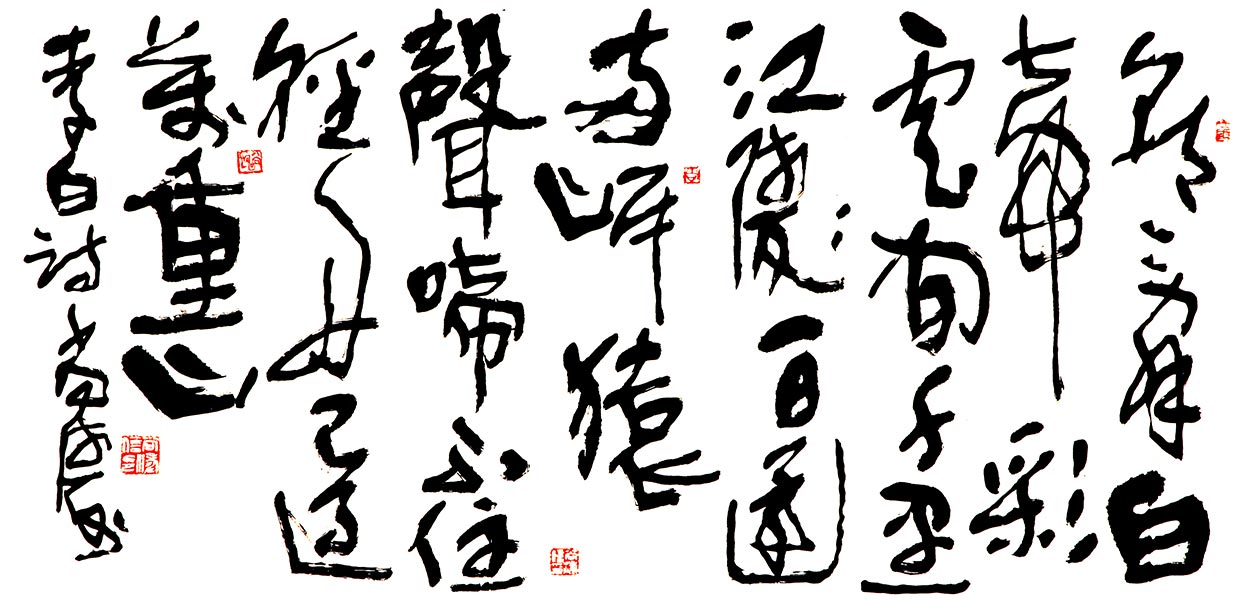 朝辭白
帝彩
雲間千里
江陵一日還
兩岸猿
聲啼不住
輕舟已過
萬重山
李白詩